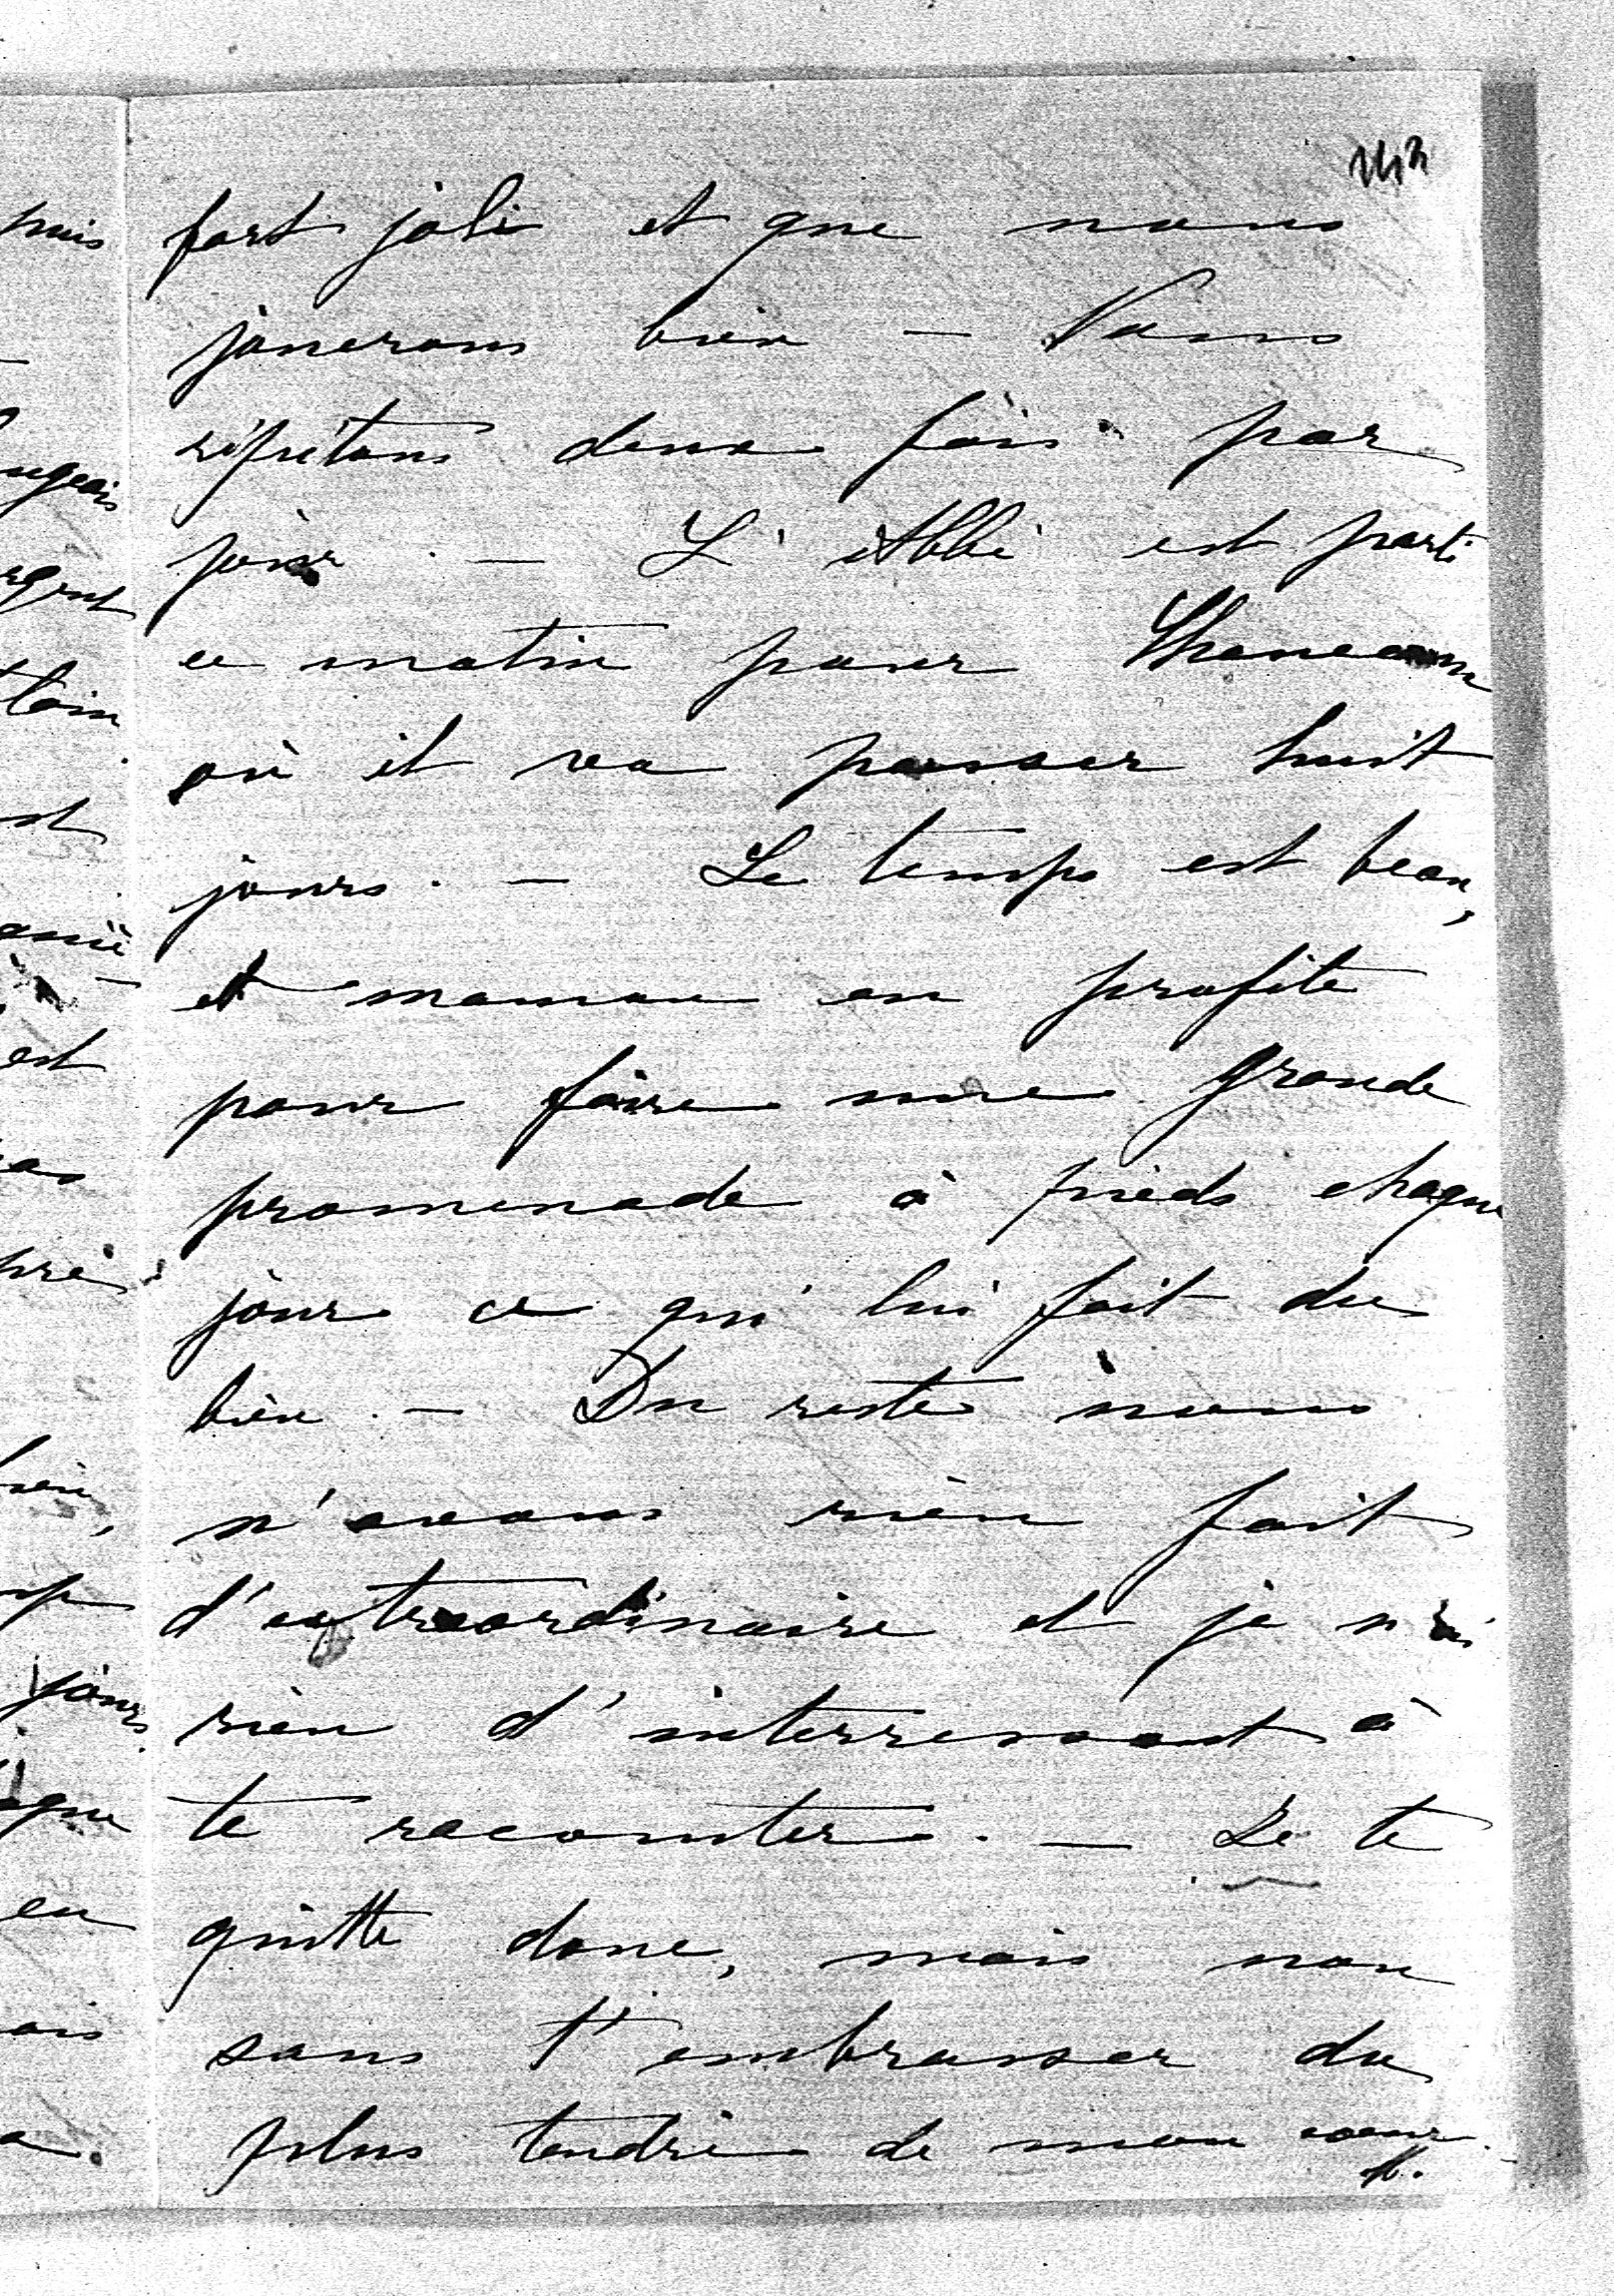 fort joli et que nous
jouerons bien — Nous
répétons deux fois par
jour. — L'Abbé est parti
ce matin pour
où il va passer huit
jours. — Le temps est beau,
et maman en profite
pour faire une grande
promenade à pieds chaque
jour ce qui lui fait du
bien. — Du reste nous
n'avons rien fait
d'extraordinaire et je n'ai
rien d'interressant à
te raconter. — Je te
quitte donc, mais non
sans t'embrasser du
plus tendre de mon coeur.